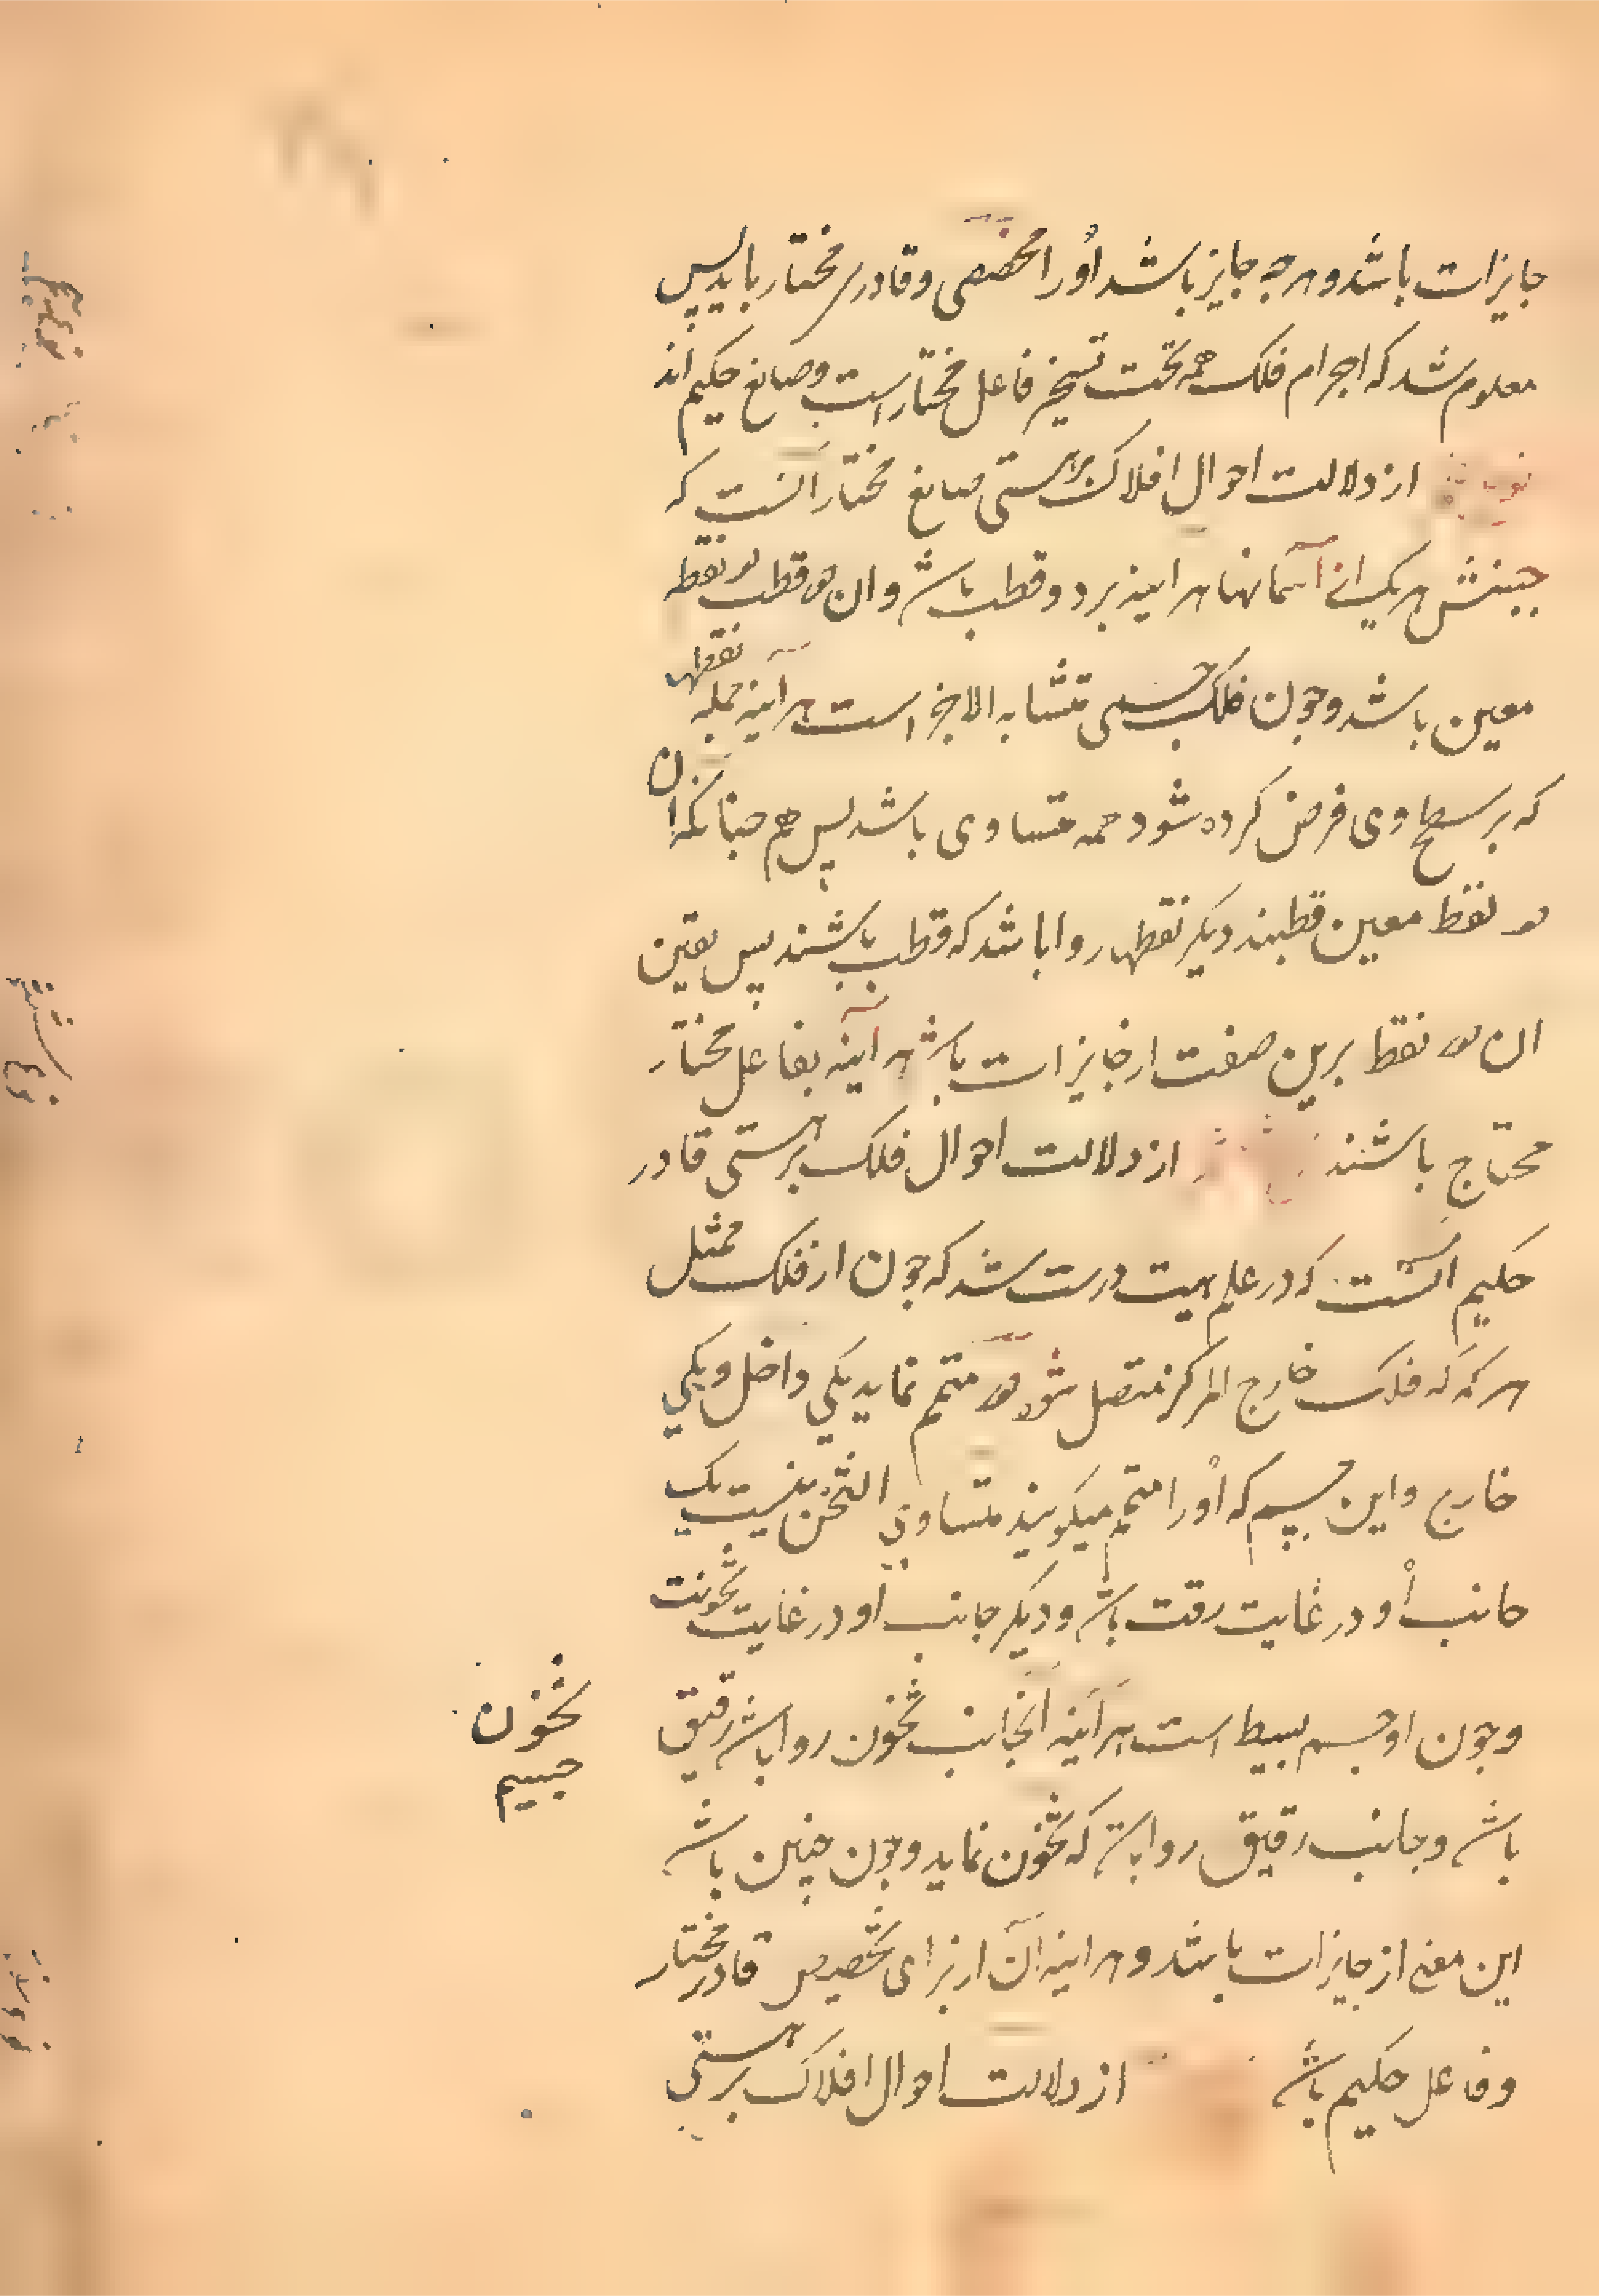 جایزات باشد و هرچه جایز باشد اورا مخصصی و قادر مختار باید پس
معلوم شد که اجرام فلک همه تحت تسخیر فاعل مختار است و صانع حکیم اند
از دلالت احوال افلاک برهستی صانع مختار آنست که
جنبش هر یکی از آسمانها هراینه بر دو قطب باشد و ان دو قطب دو نقطه
معین باشد و چون فلک جسمی متشابه الاجزا است هرآینه جمله نقطها
که بر سطح وی فرض کرده شود همه متساوی باشد پس هم چنانکه ان
دو نقط معین قطبند دیکر نقطها روا باشد که قطب باشند پس یقین
ان دو نقط برین صفت از جایزات باشد هرآینه بفاعل مختار
محتاج باشند از دلالت احوال فلک برهستی قادر
حکیم آنست که در علم هیت درست شد که چون از فلک ممثل
هرکه که فلک خارج المرکز منفصل شود دو متمم نماید یکی داخل و یکی
خارج و این جسم که اورا متمم میکویند متساوی الثخن نیست یک
جانب او در غایت رقت باشد و دیکر جانب او در غایت ثخونت
و چون او جسم بسیط است هرآینه آنجانب ثخون روا باشد رقیق
باشد و جانب رقیق روا باشد که ثخون نماید و چون چنین باشد
این معنی از جایزات باشد و هراینه آن از برای تخصیص قادر مختار
و فاعل حکیم باشد از دلالت احوال افلاک برهستی
ثخون
جسیم